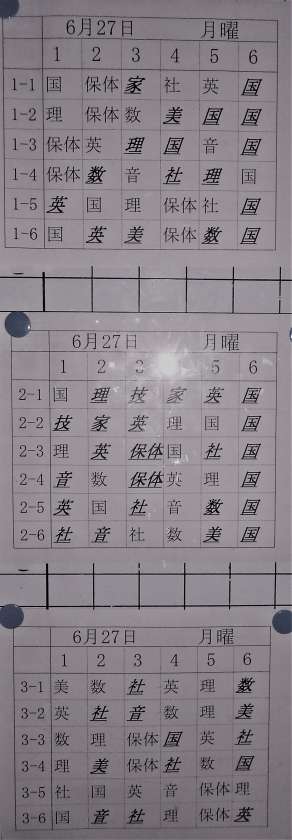 6月27日 月曜
1 2 3 4 5 6
1-1 国 保体 家 社 英 国
1-2 理 保体 数 美 国 国
1-3 保体 英 理 国 音 国
1-4 保体 数 音 社 理 国
1-5 英 国 理 保体 社 国
1-6 国 英 美 保体 数 国
6月27日 月曜
1 2 3 4 5 6
2-1 国 理 技 家 英 国
2-2 技 家 英 理 国 国
2-3 理 英 保体 国 社 国
2-4 音 数 保体 英 理 国
2-5 英 国 社 音 数 国
2-6 社 音 社 数 美 国
6月27日 月曜
1 2 3 4 5 6
3-1 美 数 社 英 理 数
3-2 英 社 音 数 理 美
3-3 数 理 保体 国 英 社
3-4 理 美 保体 社 数 国
3-5 社 国 英 音 保体 理
3-6 国 音 社 理 保体 英